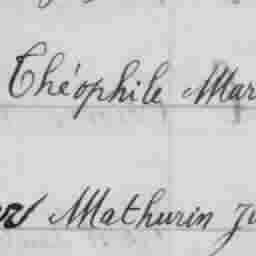 Théophile Mar
Mathurin Ju